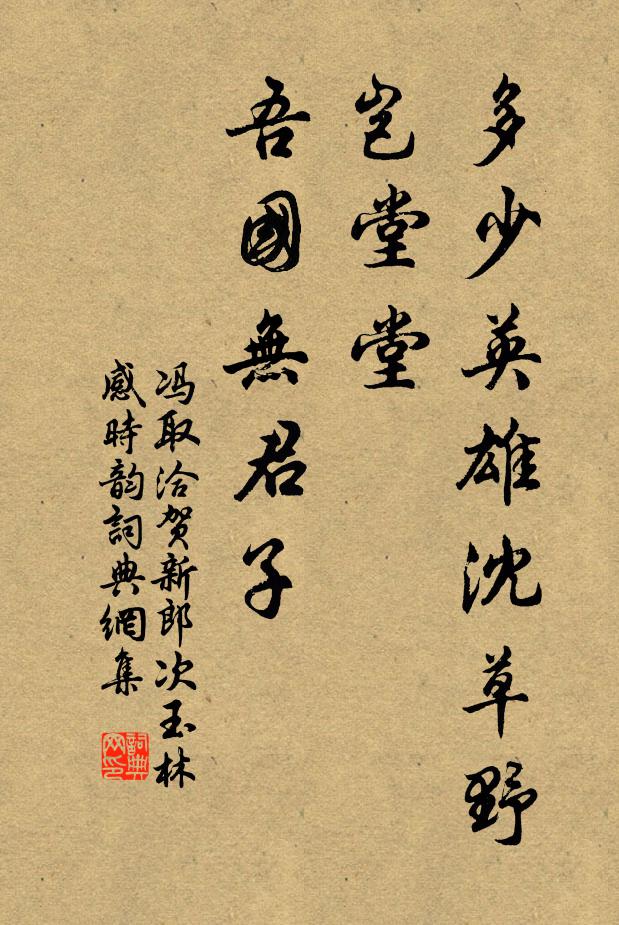 多少英雄沈草野
岂堂堂
吾國無君子
冯取洽贺新郎次玉林
感時韵詞典網集
詞典网印